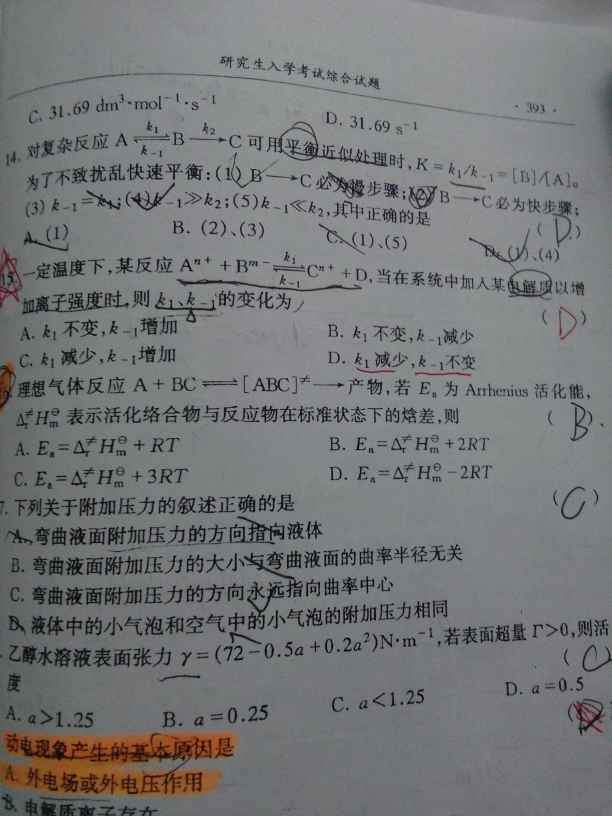 研究生入学考试综合试题
· 393 ·
C. 31.69 dm³·mol⁻¹·s⁻¹ D. 31.69 s⁻¹
14. 对复杂反应 A ⇌ B → C 可用平衡近似处理时, K = k₁/k₋₁ = [B]/[A]。 k₁ k₋₁ k₂
为了不致扰乱快速平衡:(1) B → C 必为慢步骤;(2) B → C 必为快步骤;
(3) k₋₁ = k₁;(4) k₋₁ ≫ k₂;(5) k₋₁ ≪ k₂,其中正确的是 ( D )
A. (1) B. (2)、(3) C. (1)、(5) D. (1)、(4)
15 一定温度下,某反应 Aⁿ⁺ + Bᵐ⁻ ⇌ Cⁿ⁺ + D, 当在系统中加入某电解质以增 k₁ k₋₁
加离子强度时,则 k₁、k₋₁ 的变化为 ( D )
A. k₁ 不变, k₋₁ 增加 B. k₁ 不变, k₋₁ 减少
C. k₁ 减少, k₋₁ 增加 D. k₁ 减少, k₋₁ 不变
理想气体反应 A + BC ⇌ [ABC]≠ → 产物,若 Eₐ 为 Arrhenius 活化能,
Δ≠rH⊖m 表示活化络合物与反应物在标准状态下的焓差,则 ( B )
A. Eₐ = Δ≠rH⊖m + RT B. Eₐ = Δ≠rH⊖m + 2RT
C. Eₐ = Δ≠rH⊖m + 3RT D. Eₐ = Δ≠rH⊖m − 2RT
7. 下列关于附加压力的叙述正确的是 ( C )
A. 弯曲液面附加压力的方向指向液体
B. 弯曲液面附加压力的大小与弯曲液面的曲率半径无关
C. 弯曲液面附加压力的方向永远指向曲率中心
D. 液体中的小气泡和空气中的小气泡的附加压力相同
乙醇水溶液表面张力 γ = (72 − 0.5a + 0.2a²)N·m⁻¹,若表面超量 Γ>0,则活
度 ( C )
A. a>1.25 B. a=0.25 C. a<1.25 D. a=0.5
动电现象产生的基本原因是
A. 外电场或外电压作用
B. 电解质离子存在